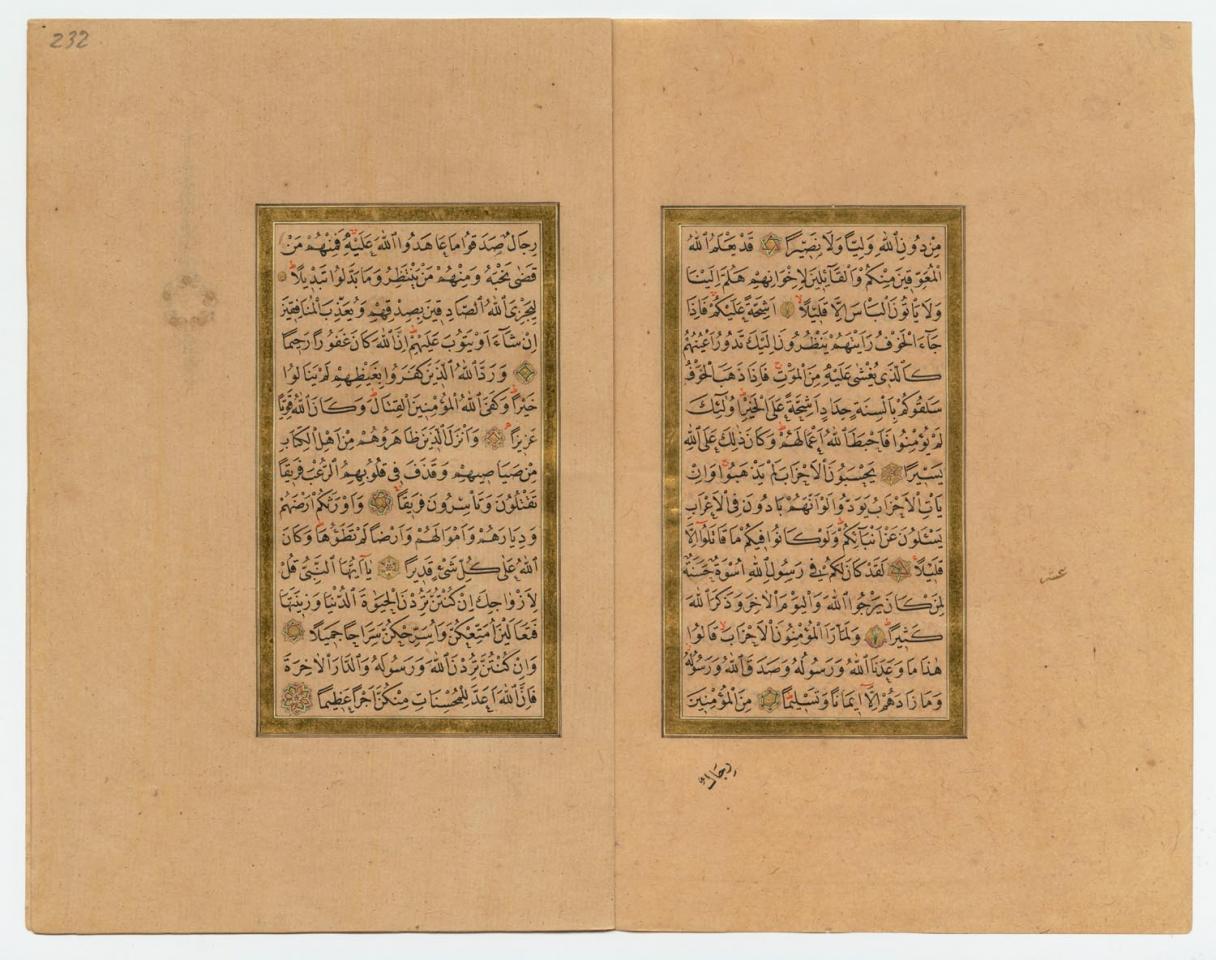 232
مِنْ دُونِ اللهِ وَلِيًّا وَلَا نَصِيرًا قَدْ يَعْلَمُ اللهُ
الْمُعَوِّقِينَ مِنْكُمْ وَالْقَآئِلِينَ لِاِخْوَانِهِمْ هَلُمَّ اِلَيْنَا
وَلَا يَأْتُونَ الْبَأْسَ اِلَّا قَلِيلًا اَشِحَّةً عَلَيْكُمْ فَاِذَا
جَآءَ الْخَوْفُ رَاَيْتَهُمْ يَنْظُرُونَ اِلَيْكَ تَدُورُ اَعْيُنُهُمْ
كَالَّذِى يُغْشٰى عَلَيْهِ مِنَ الْمَوْتِ فَاِذَا ذَهَبَ الْخَوْفُ
سَلَقُوكُمْ بِاَلْسِنَةٍ حِدَادٍ اَشِحَّةً عَلَى الْخَيْرِ اُولٰئِكَ
لَمْ يُؤْمِنُوا فَاَحْبَطَ اللهُ اَعْمَالَهُمْ وَكَانَ ذٰلِكَ عَلَى اللهِ
يَسِيرًا يَحْسَبُونَ الْاَحْزَابَ لَمْ يَذْهَبُوا وَاِنْ
يَأْتِ الْاَحْزَابُ يَوَدُّوا لَوْ اَنَّهُمْ بَادُونَ فِى الْاَعْرَابِ
يَسْئَلُونَ عَنْ اَنْبَآئِكُمْ وَلَوْ كَانُوا فِيكُمْ مَا قَاتَلُوا اِلَّا
قَلِيلًا لَقَدْ كَانَ لَكُمْ فِى رَسُولِ اللهِ اُسْوَةٌ حَسَنَةٌ
لِمَنْ كَانَ يَرْجُوا اللهَ وَالْيَوْمَ الْاٰخِرَ وَذَكَرَ اللهَ
كَثِيرًا وَلَمَّا رَاَ الْمُؤْمِنُونَ الْاَحْزَابَ قَالُوا
هٰذَا مَا وَعَدَنَا اللهُ وَرَسُولُهُ وَصَدَقَ اللهُ وَرَسُولُهُ
وَمَا زَادَهُمْ اِلَّآ اِيمَانًا وَتَسْلِيمًا مِنَ الْمُؤْمِنِينَ
رِجَالٌ
عشر
رِجَالٌ صَدَقُوا مَا عَاهَدُوا اللهَ عَلَيْهِ فَمِنْهُمْ مَنْ
قَضٰى نَحْبَهُ وَمِنْهُمْ مَنْ يَنْتَظِرُ وَمَا بَدَّلُوا تَبْدِيلًا
لِيَجْزِىَ اللهُ الصَّادِقِينَ بِصِدْقِهِمْ وَيُعَذِّبَ الْمُنَافِقِينَ
اِنْ شَآءَ اَوْ يَتُوبَ عَلَيْهِمْ اِنَّ اللهَ كَانَ غَفُورًا رَحِيمًا
وَرَدَّ اللهُ الَّذِينَ كَفَرُوا بِغَيْظِهِمْ لَمْ يَنَالُوا
خَيْرًا وَكَفَى اللهُ الْمُؤْمِنِينَ الْقِتَالَ وَكَانَ اللهُ قَوِيًّا
عَزِيزًا وَاَنْزَلَ الَّذِينَ ظَاهَرُوهُمْ مِنْ اَهْلِ الْكِتَابِ
مِنْ صَيَاصِيهِمْ وَقَذَفَ فِى قُلُوبِهِمُ الرُّعْبَ فَرِيقًا
تَقْتُلُونَ وَتَأْسِرُونَ فَرِيقًا وَاَوْرَثَكُمْ اَرْضَهُمْ
وَدِيَارَهُمْ وَاَمْوَالَهُمْ وَاَرْضًا لَمْ تَطَؤُهَا وَكَانَ
اللهُ عَلٰى كُلِّ شَىْءٍ قَدِيرًا يَآ اَيُّهَا النَّبِىُّ قُلْ
لِاَزْوَاجِكَ اِنْ كُنْتُنَّ تُرِدْنَ الْحَيٰوةَ الدُّنْيَا وَزِينَتَهَا
فَتَعَالَيْنَ اُمَتِّعْكُنَّ وَاُسَرِّحْكُنَّ سَرَاحًا جَمِيلًا
وَاِنْ كُنْتُنَّ تُرِدْنَ اللهَ وَرَسُولَهُ وَالدَّارَ الْاٰخِرَةَ
فَاِنَّ اللهَ اَعَدَّ لِلْمُحْسِنَاتِ مِنْكُنَّ اَجْرًا عَظِيمًا